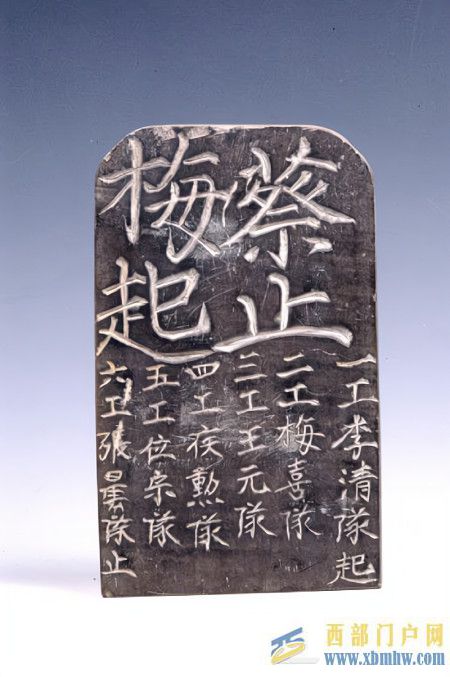 蔡止
梅起
一工李清隊起
二工梅喜隊
三工王元隊
四工疾勲隊
五工位宗隊
六工張暠隊止
西部门户网
www.xbmhw.com